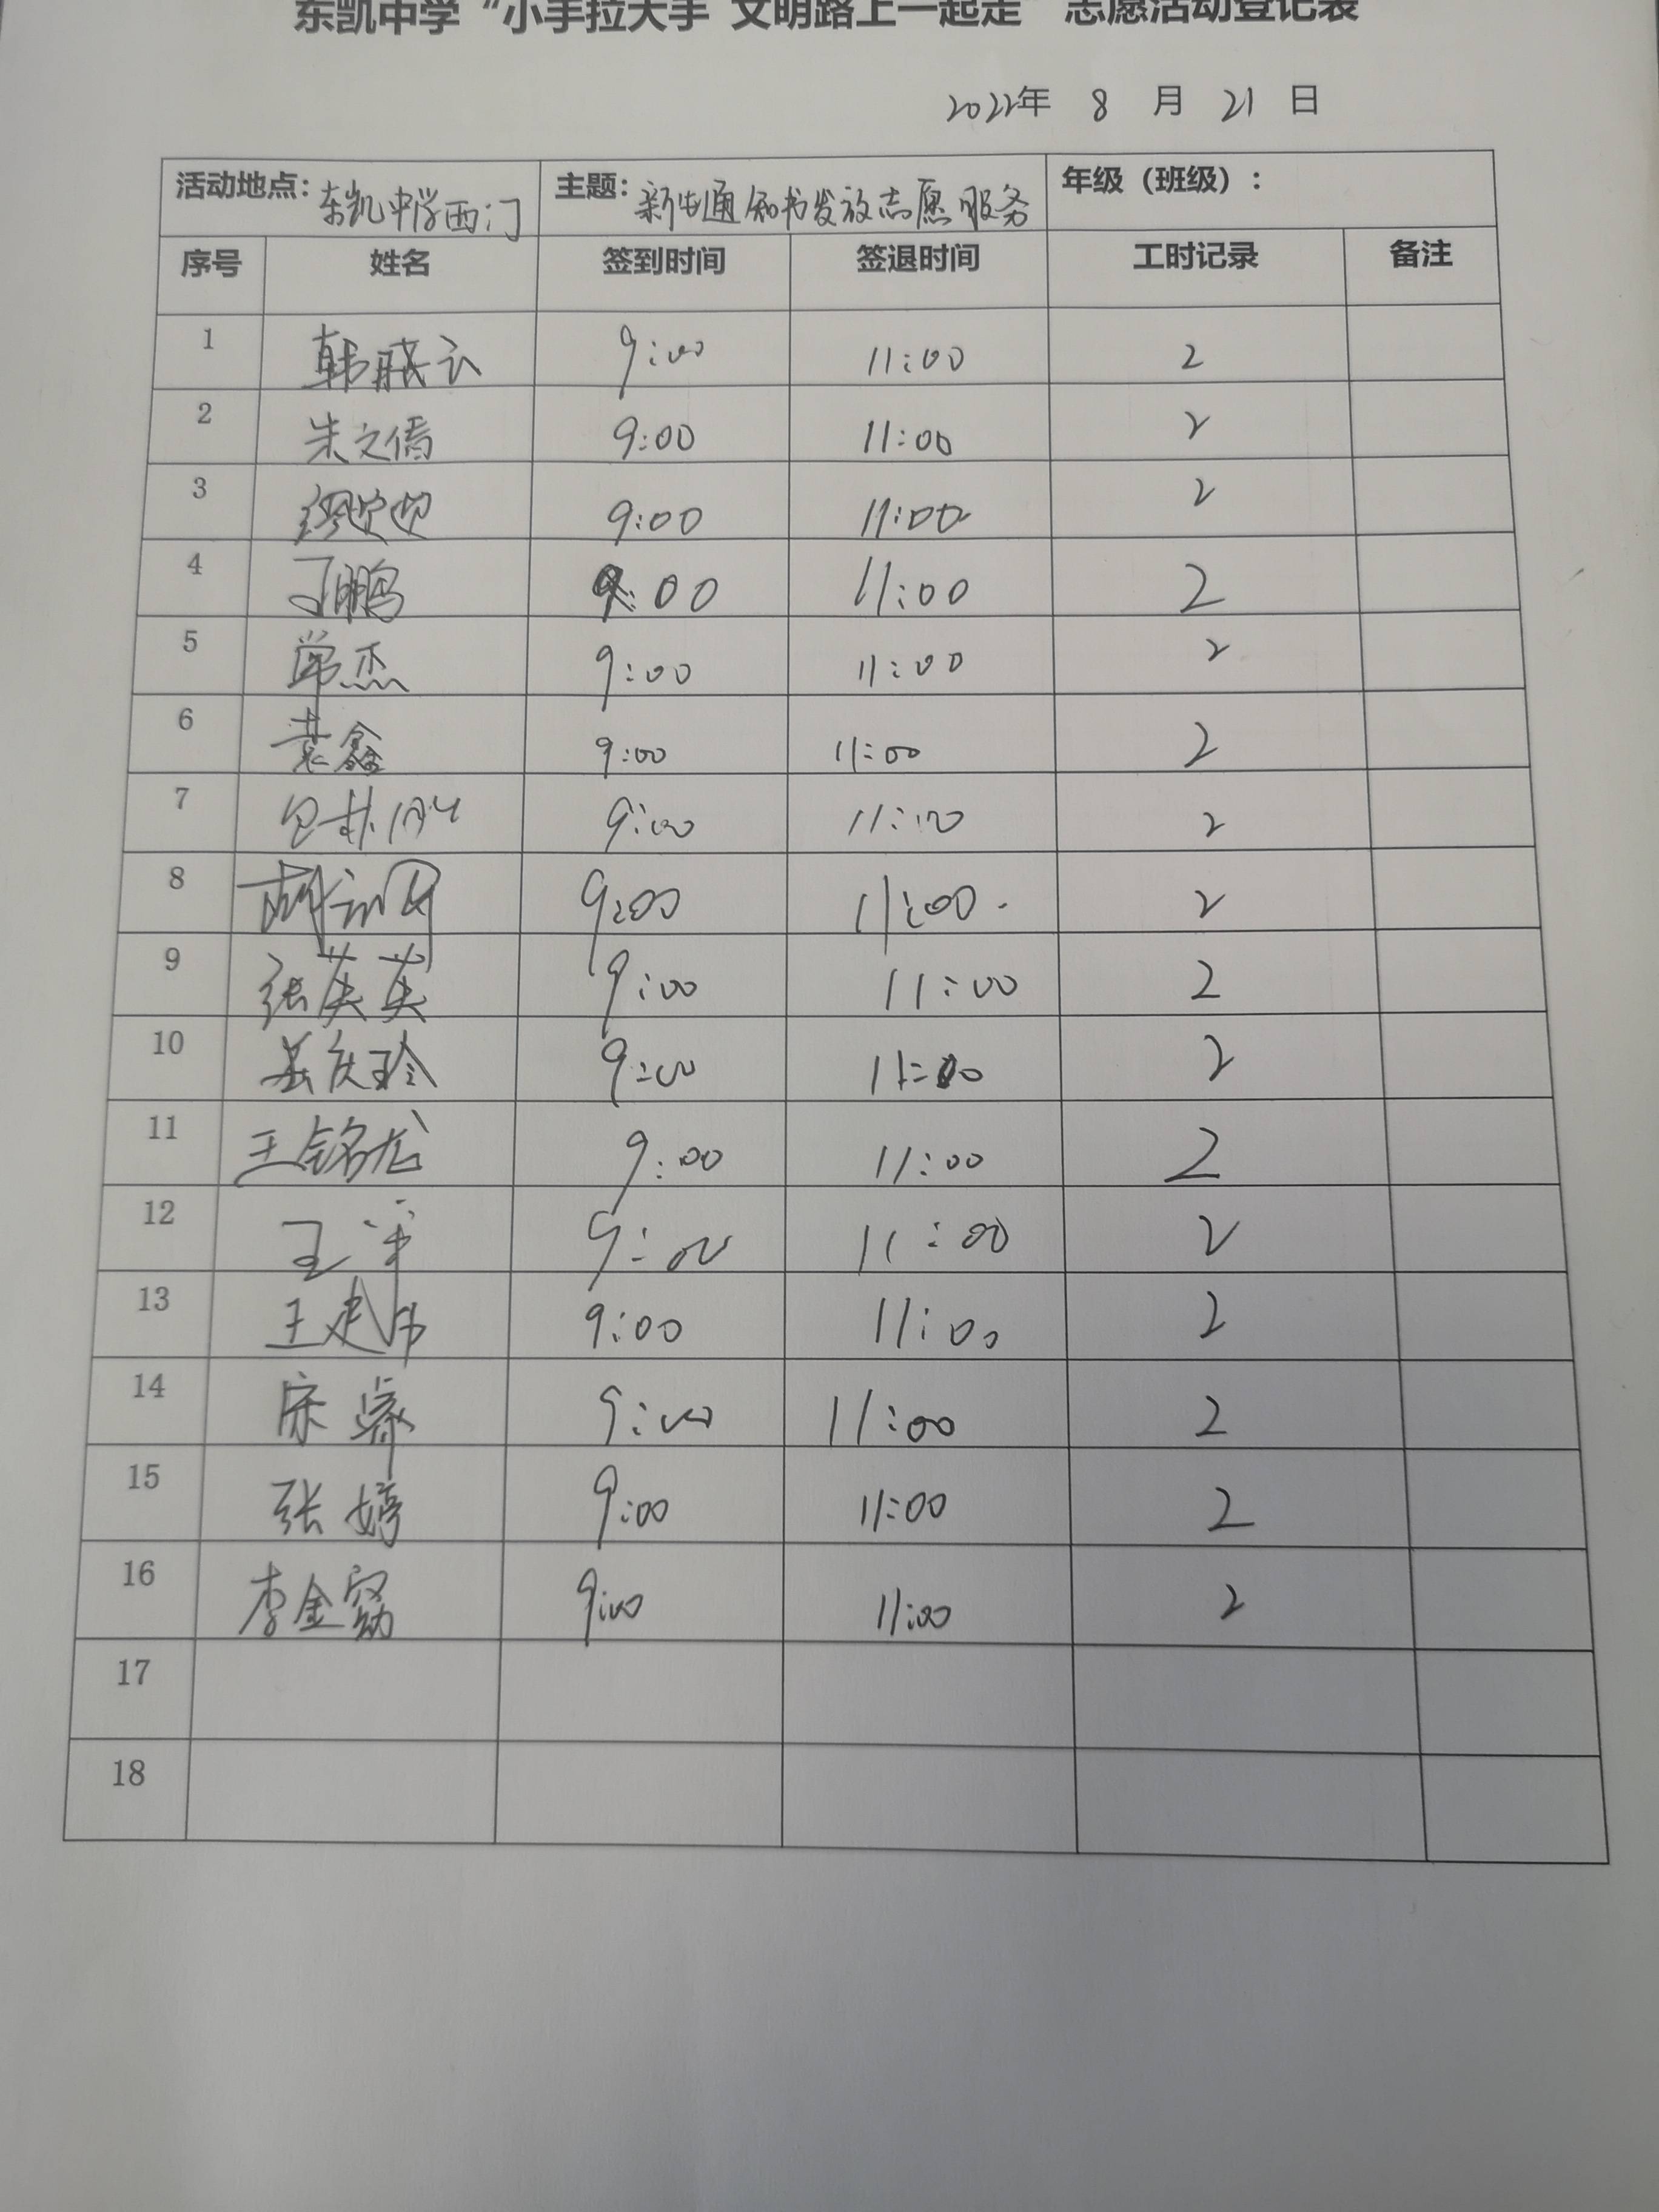 东凯中学“小手拉大手 文明路上一起走”志愿活动登记表
2022年 8 月 21 日
活动地点：东凯中学西门 主题：新生通知书发放志愿服务 年级（班级）：
序号 姓名 签到时间 签退时间 工时记录 备注
1 韩晓云 9:00 11:00 2
2 朱文倩 9:00 11:00 2
3 9:00 11:00 2
4 丁鹏 9:00 11:00 2
5 常杰 9:00 11:00 2
6 袁鑫 9:00 11:00 2
7 9:00 11:00 2
8 9:00 11:00 2
9 张英英 9:00 11:00 2
10 9:00 11:00 2
11 王铭龙 9:00 11:00 2
12 王 9:00 11:00 2
13 王建伟 9:00 11:00 2
14 宋 9:00 11:00 2
15 张婷 9:00 11:00 2
16 李金 9:00 11:00 2
17
18